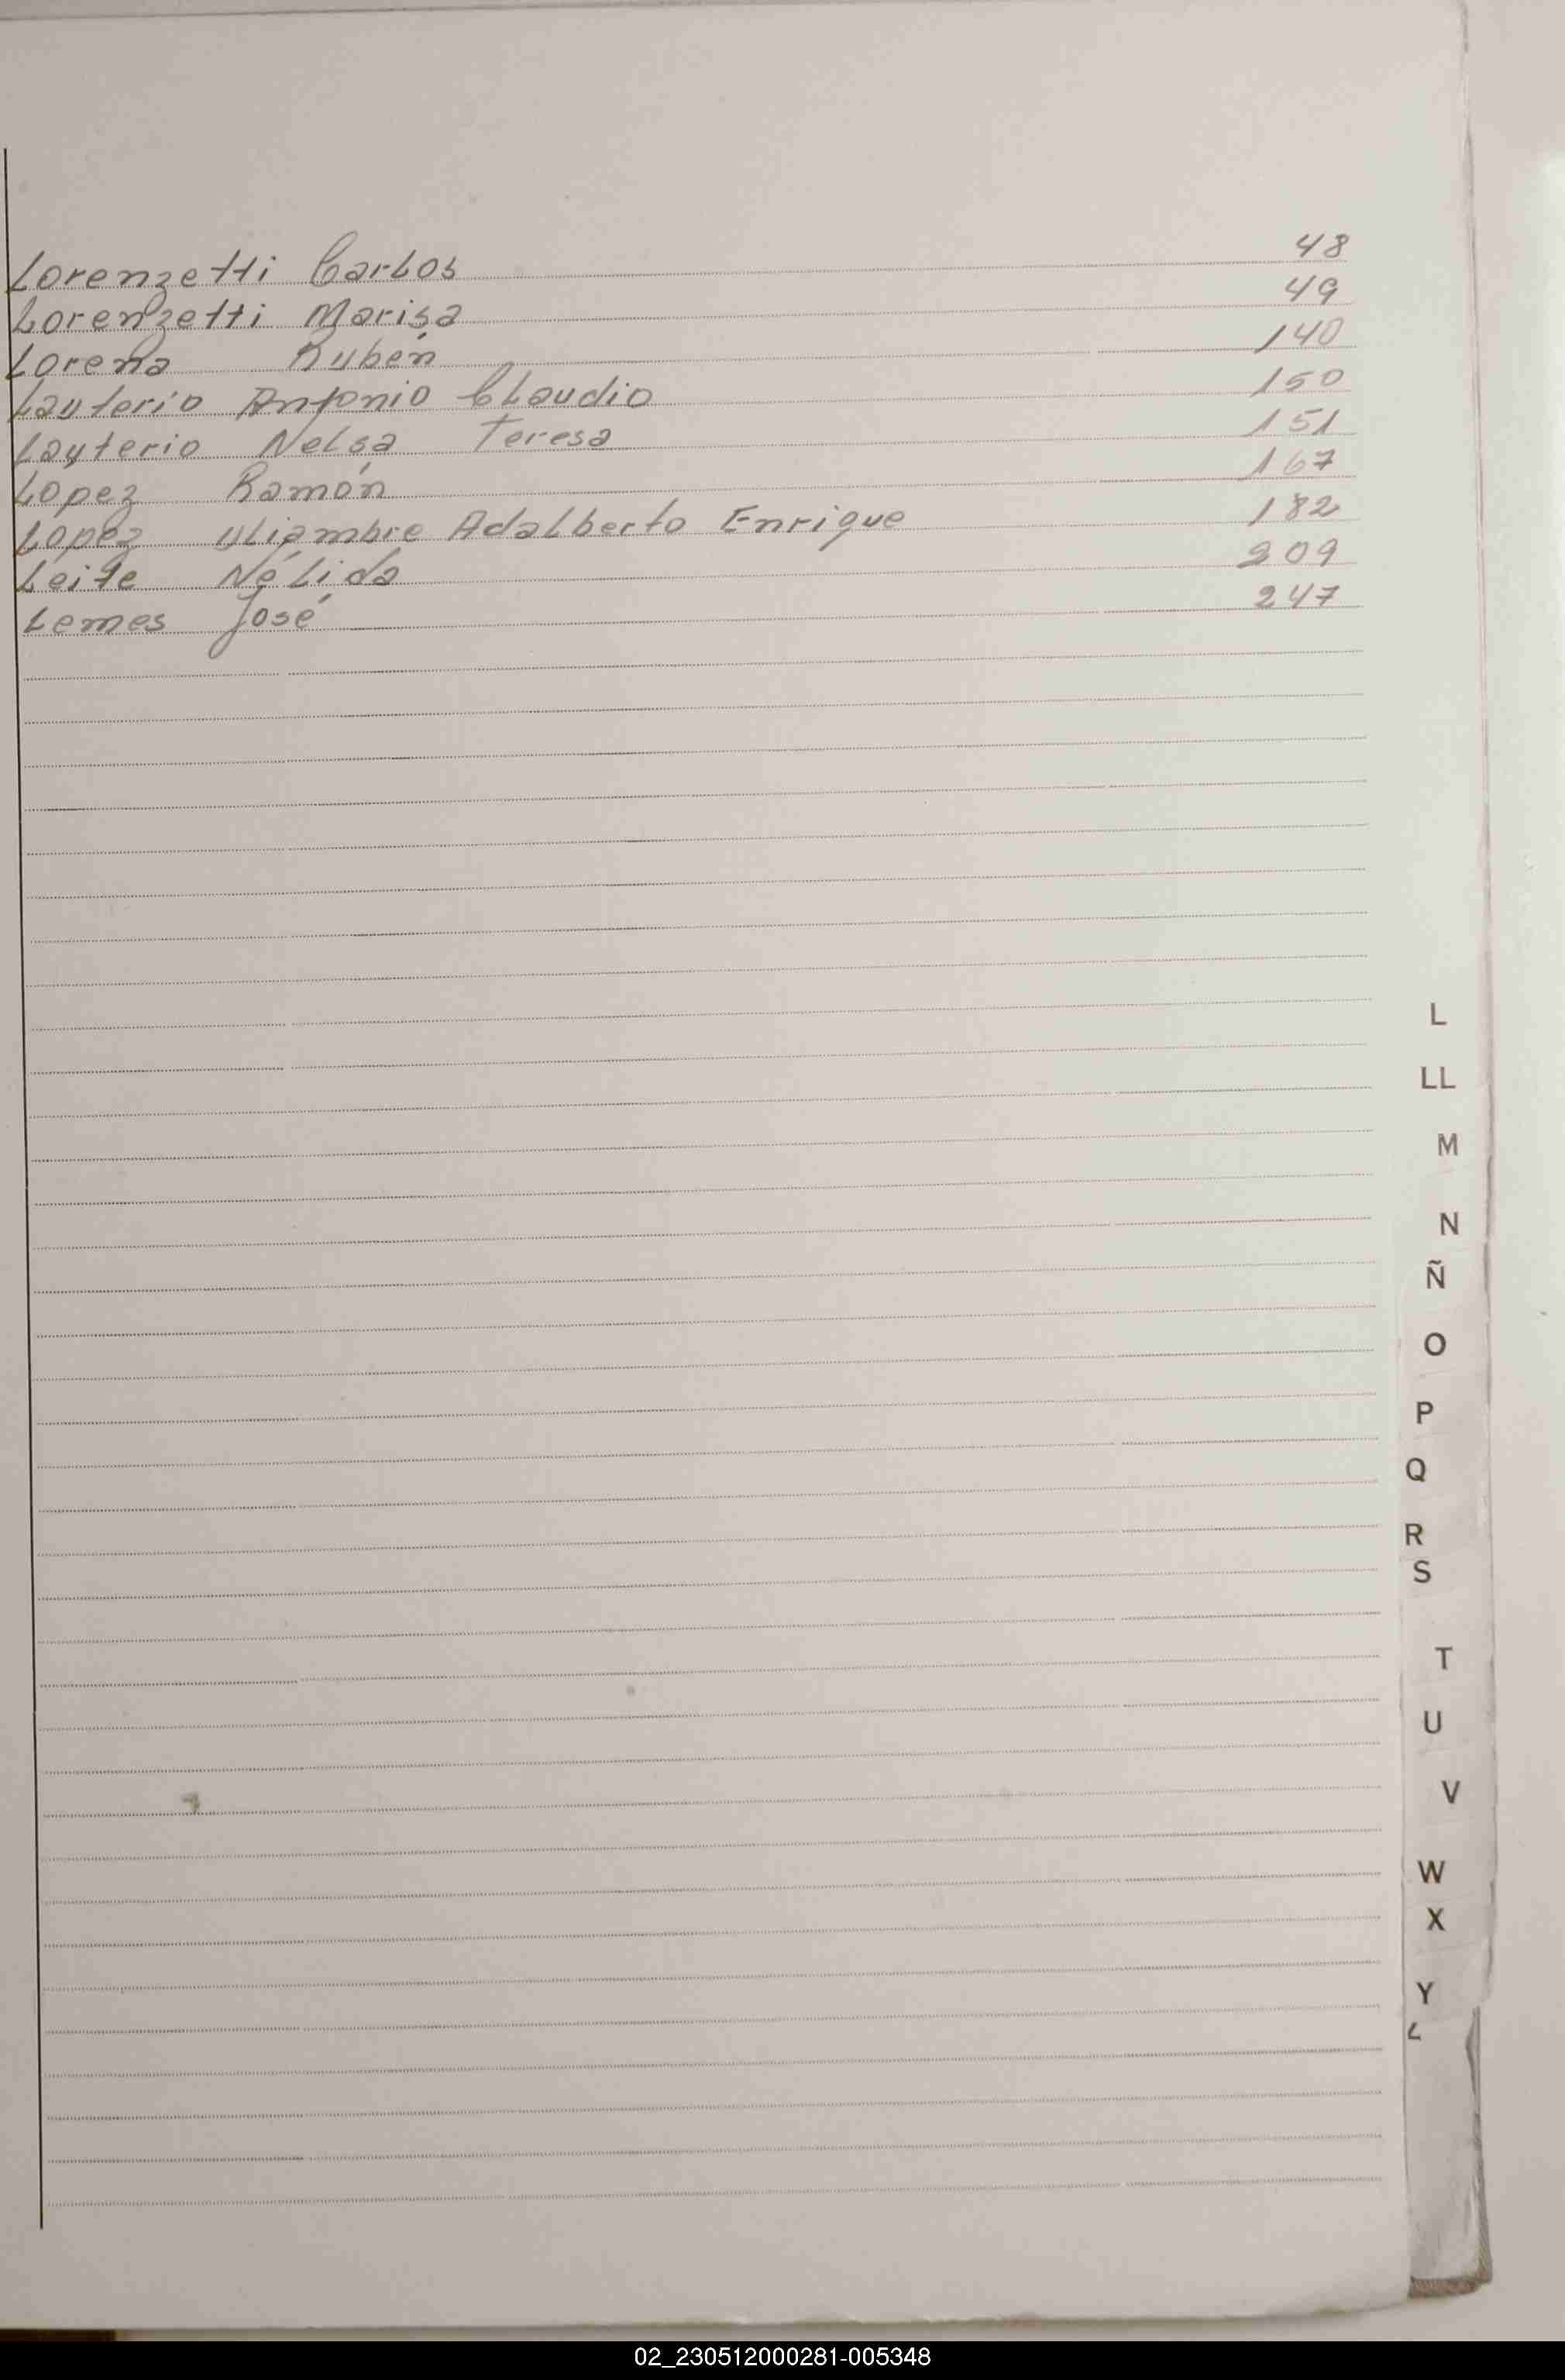 Lorenzetti Carlos 48
Lorenzetti Marisa 49
Lorena Rubén 140
Lauterio Antonio Claudio 150
Lauterio Nelsa Teresa 151
Lopez Ramón 167
Lopez Uliambre Adalberto Enrique 182
Leite Nélida 209
Lemes José 247
L
LL
M
N
Ñ
O
P
Q
R
S
T
U
V
W
X
Y
02_230512000281-005348